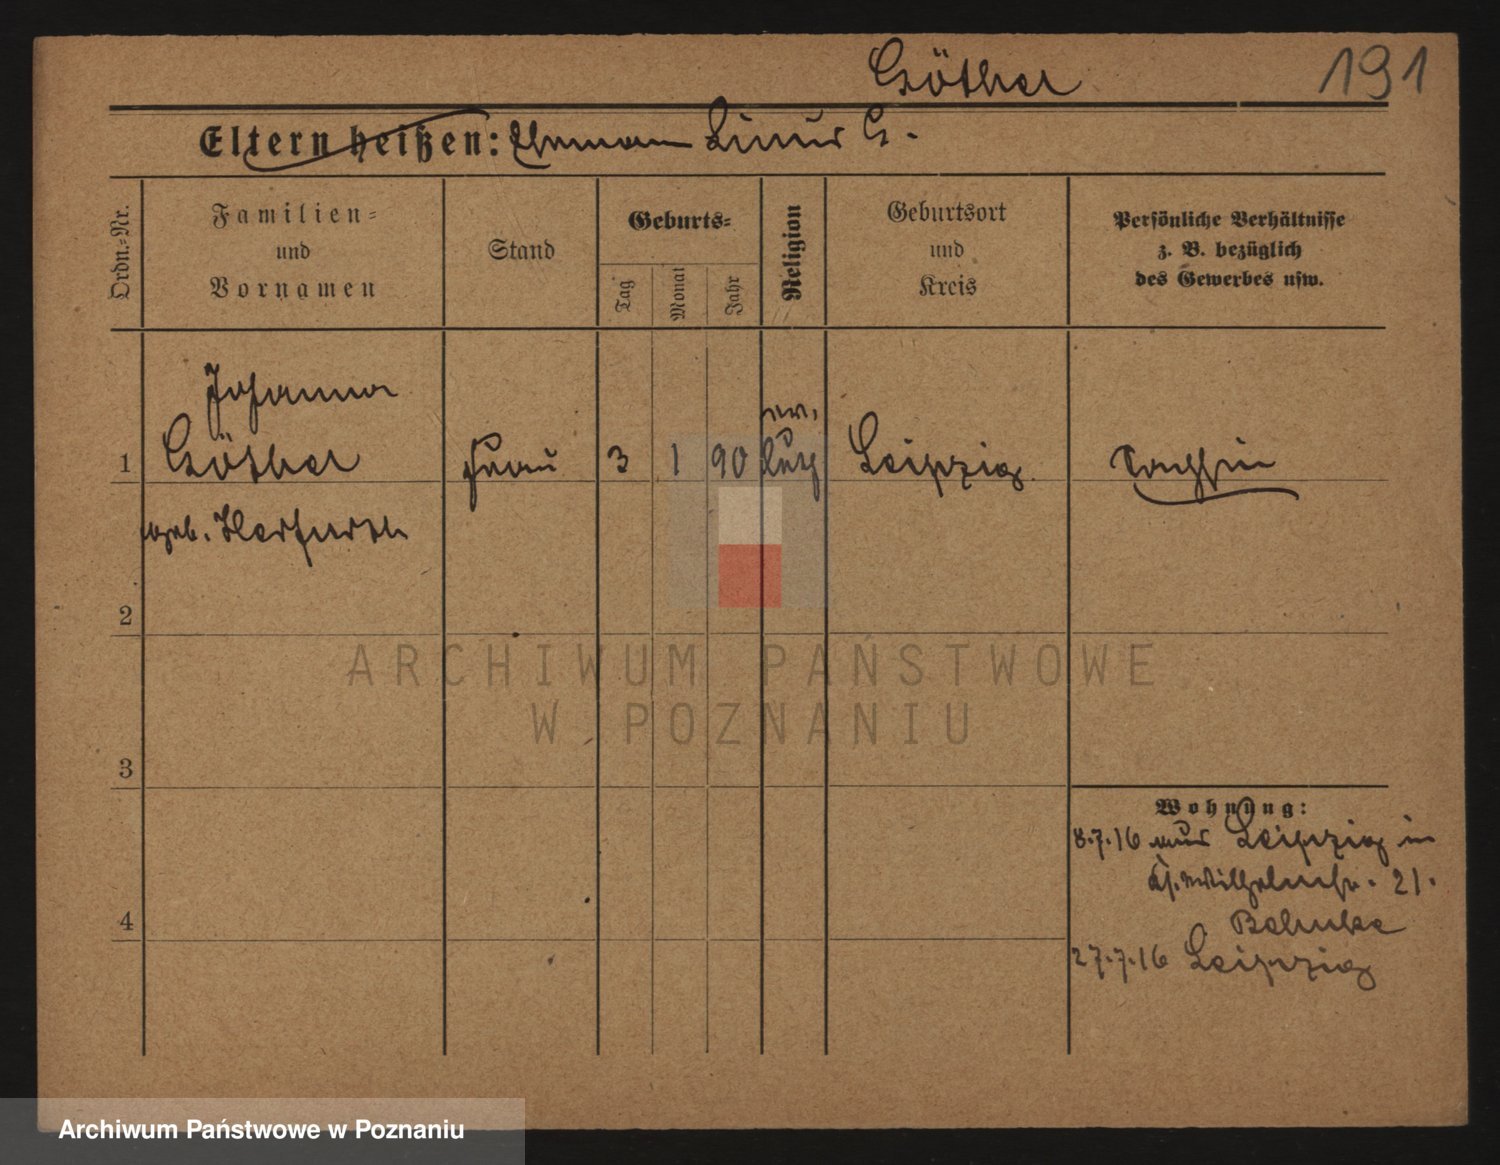 Göther 191
Eltern heißen: Ehemann Linus G.
Ordn.=Nr.
Familien=
und
Vornamen
Stand
Geburts=
Tag
Monat
Jahr
Religion
Geburtsort
und
Kreis
Persönliche Verhältnisse
z. B. bezüglich
des Gewerbes usw.
Johanna
ev.
1 Göther Frau 3 1 90 luth Leipzig
geb. Herfurth
2
3
4
Wohnung:
8.7.16 aus Leipzig in
Wilhelmstr. 21.
Behnke
27.7.16 Leipzig
ARCHIWUM PAŃSTWOWE
W POZNANIU
Archiwum Państwowe w Poznaniu